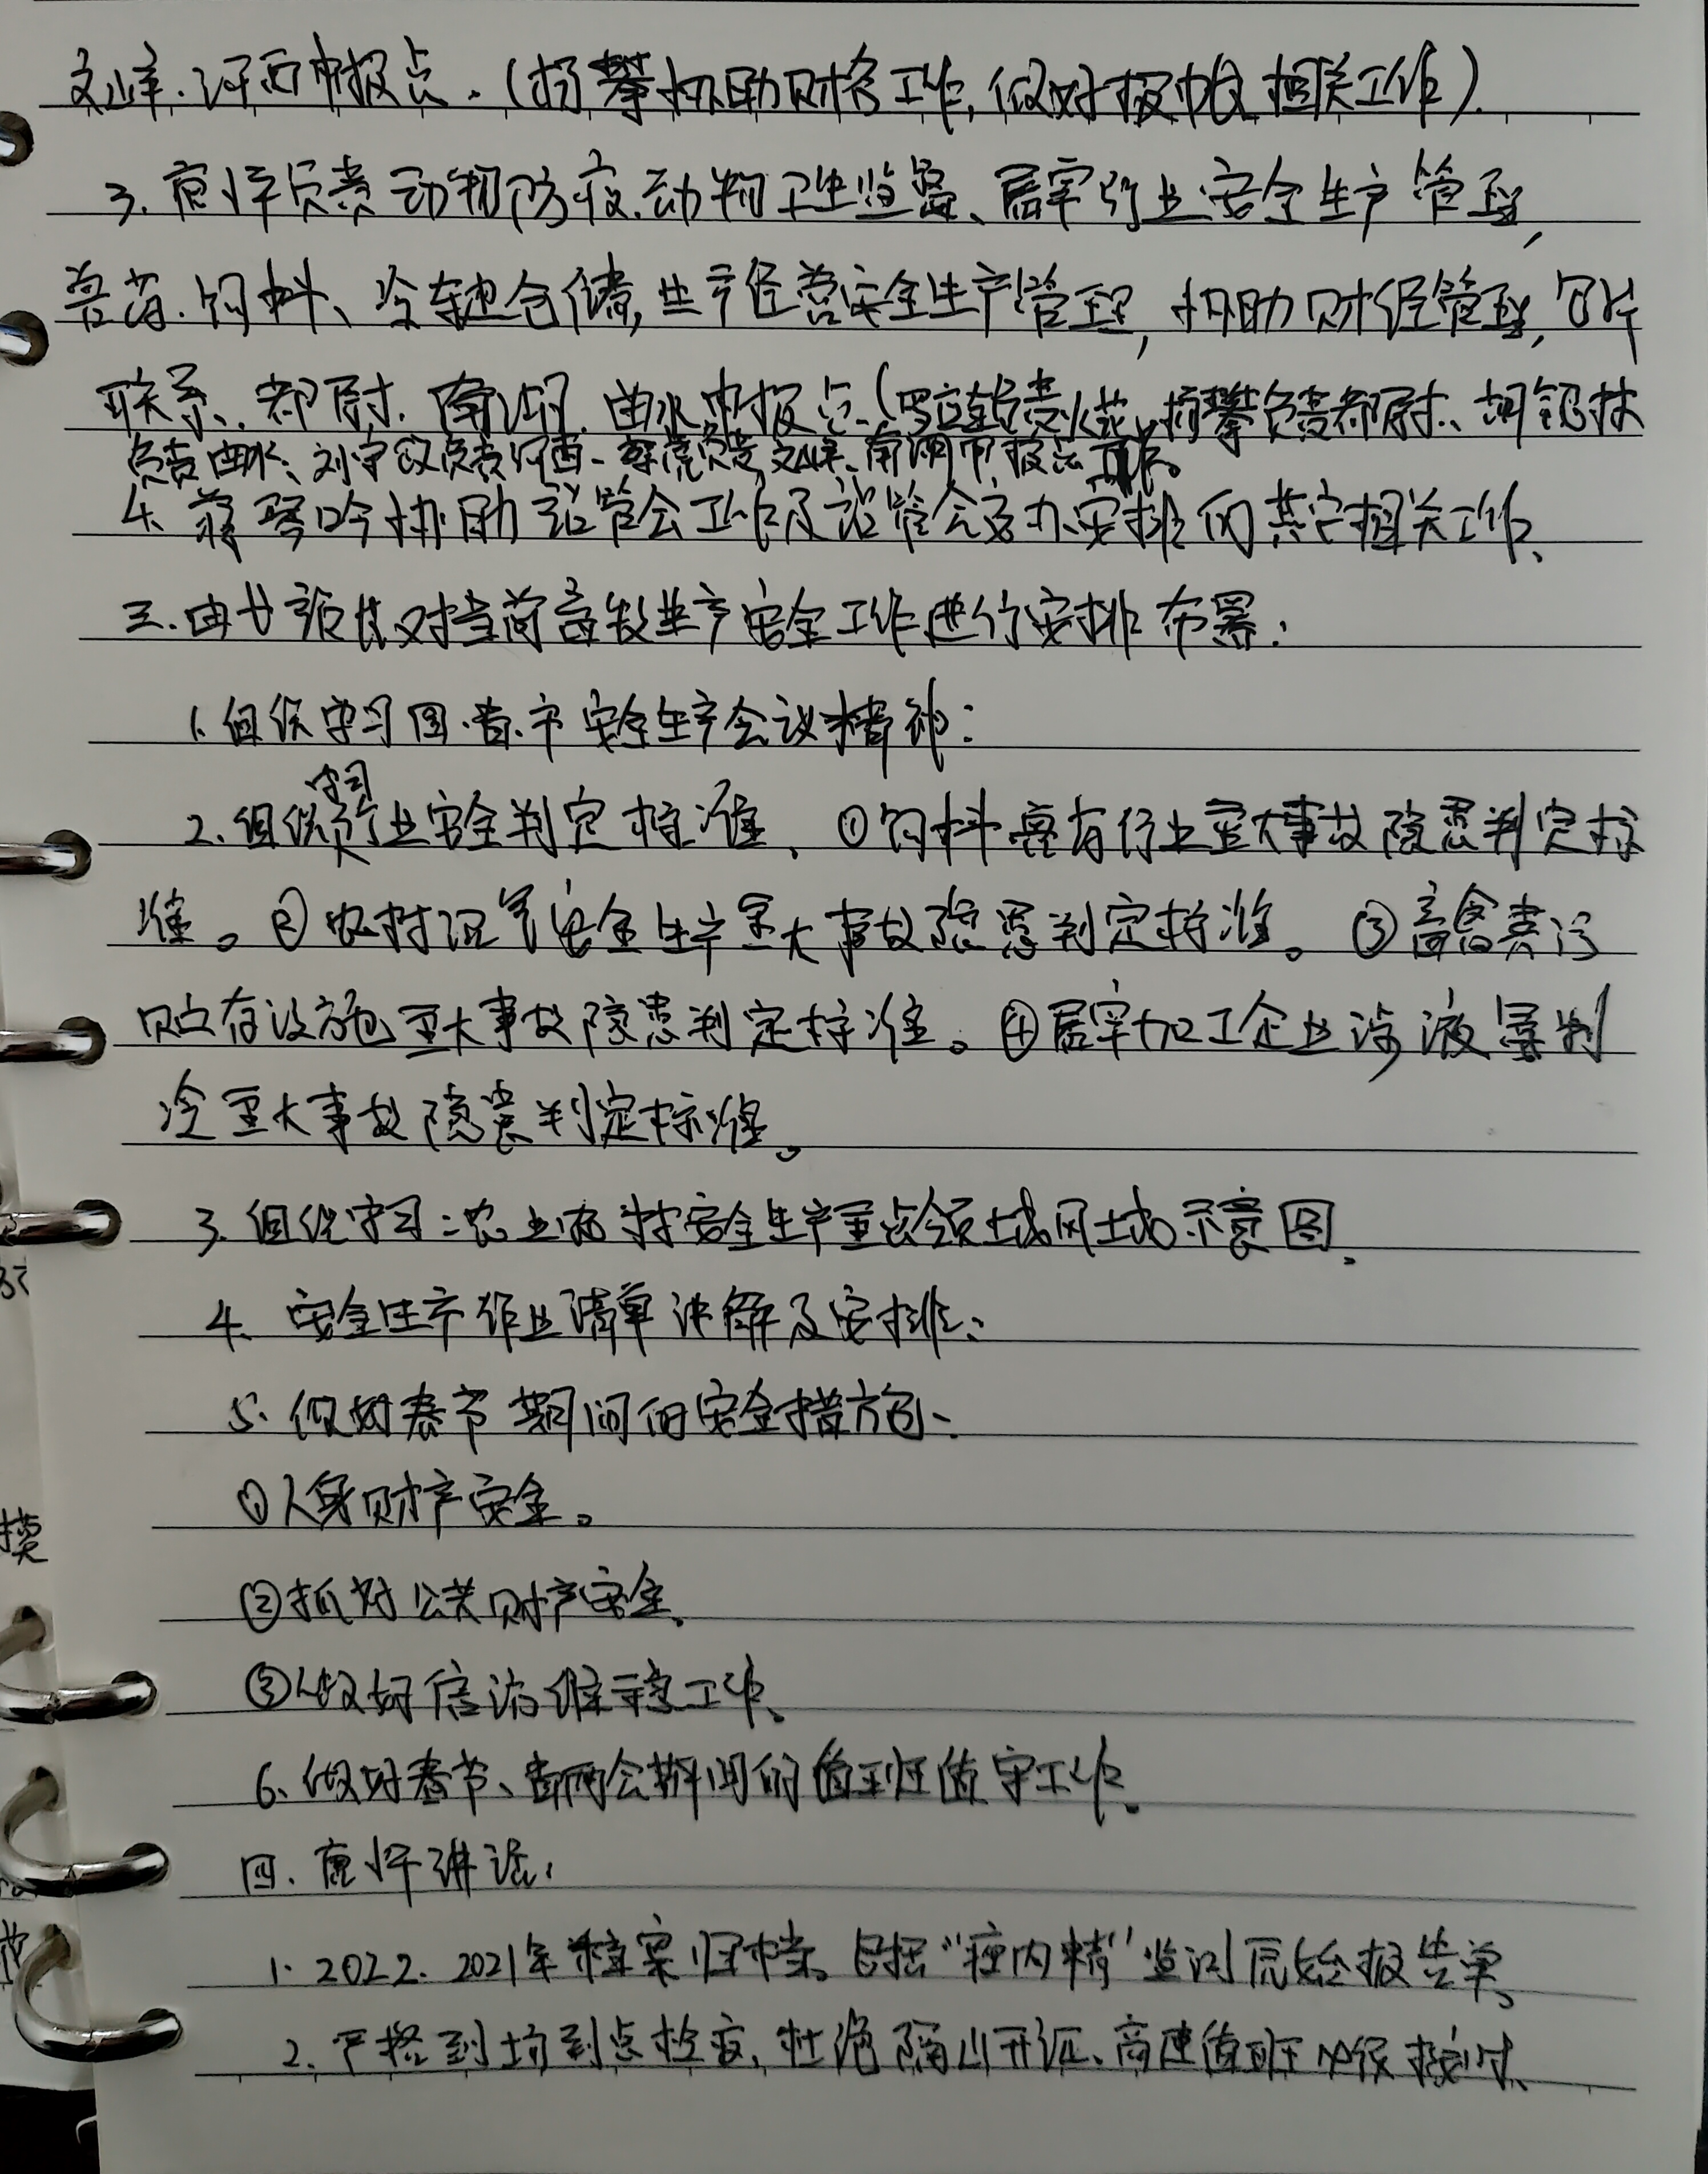 文峰、河西申报点。(杨攀协助财务工作,做好报账相关工作)
3. 唐烊负责动物防疫、动物卫生监督、屠宰行业安全生产管理,
兽药、饲料、冷链仓储,生产经营安全生产管理,协助财经管理,包片
联系、都尉、南湖、曲水申报点(负责火花、杨攀负责都尉、胡银林
负责曲水、刘守政负责河西、负责文峰、南湖申报点工作。
4. 协助监管会工作及监管会交办安排的其它相关工作、
三.由甘对当前畜牧生产安全工作进行安排布署:
1. 组织学习国、省、市安全生产会议精神:
2. 组织学习行业安全判定标准、①饲料兽药行业重大事故隐患判定标
准。②农村沼气安全生产重大事故隐患判定标准。③畜禽粪污
贮存设施重大事故隐患判定标准。④屠宰加工企业涉液氨制
冷重大事故隐患判定标准。
3. 组织学习:农业农村安全生产重点领域风土示意图、
4、安全生产作业清单讲解及安排:
5. 做好春节期间的安全措施、
①人身财产安全。
②抓好公共财产安全、
③做好信访维稳工作、
6、做好春节、省两会期间的值班值守工作、
四、唐烊讲话:
1. 2022、2021年档案归档。包括"瘦肉精"监测原始报告单、
2. 严格到场到点检疫,杜绝隔山开证、高速值班